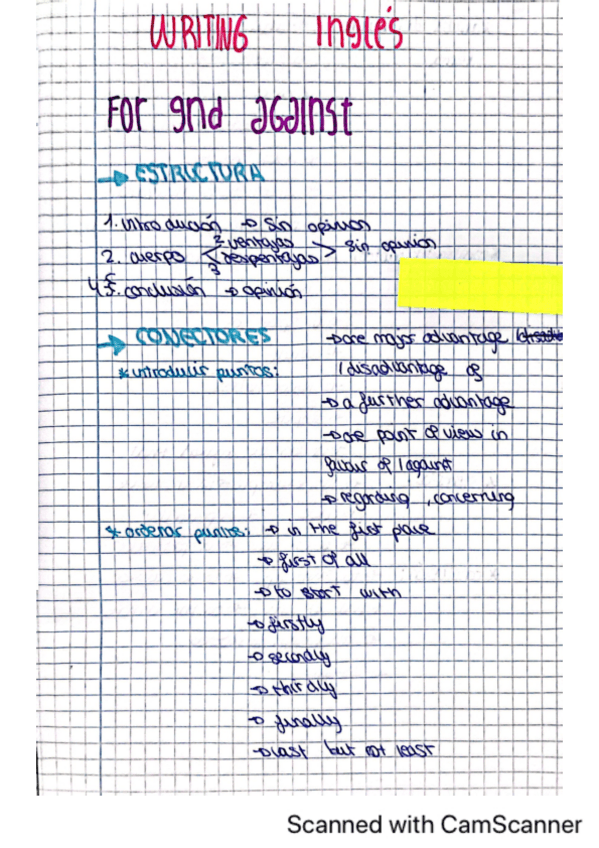 WRITING Inglés
For and against
→ ESTRUCTURA
1. introducción → sin opinion
2 ventajas
2. cuerpo < > sin opinión
desventajas
3
4 5. conclusión → opinión
→ CONECTORES
→ one major advantage
* introducir puntos: / disadvantage of
→ a further advantage
→ one point of view in
favour of / against
→ regarding, concerning
* ordenar puntos: → in the first place
→ first of all
→ to start with
→ firstly
→ secondly
→ thirdly
→ finally
→ last but not least
Scanned with CamScanner